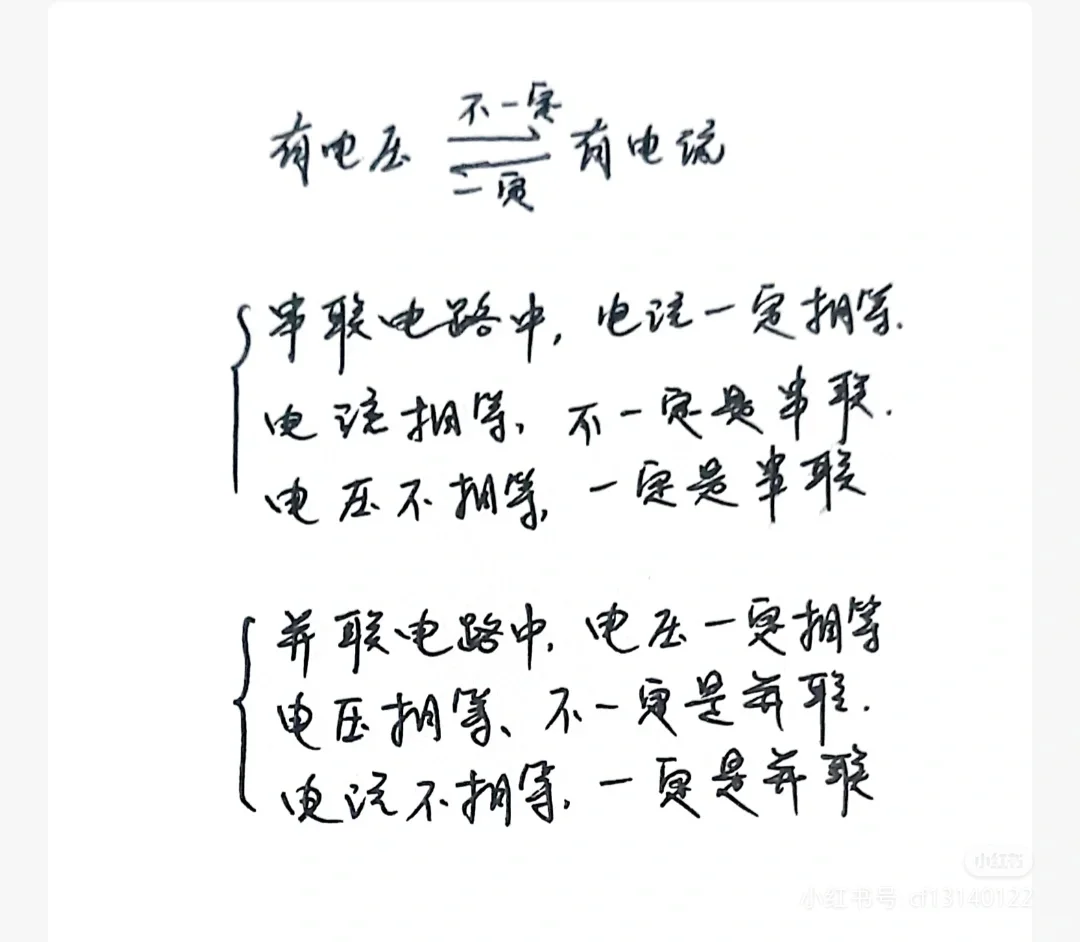 不一定
有电压 有电流
一定
串联电路中, 电流一定相等.
电流相等, 不一定是串联.
电压不相等, 一定是串联
并联电路中, 电压一定相等
电压相等、不一定是并联.
电流不相等, 一定是并联
小红书
小红书号 cf13140122